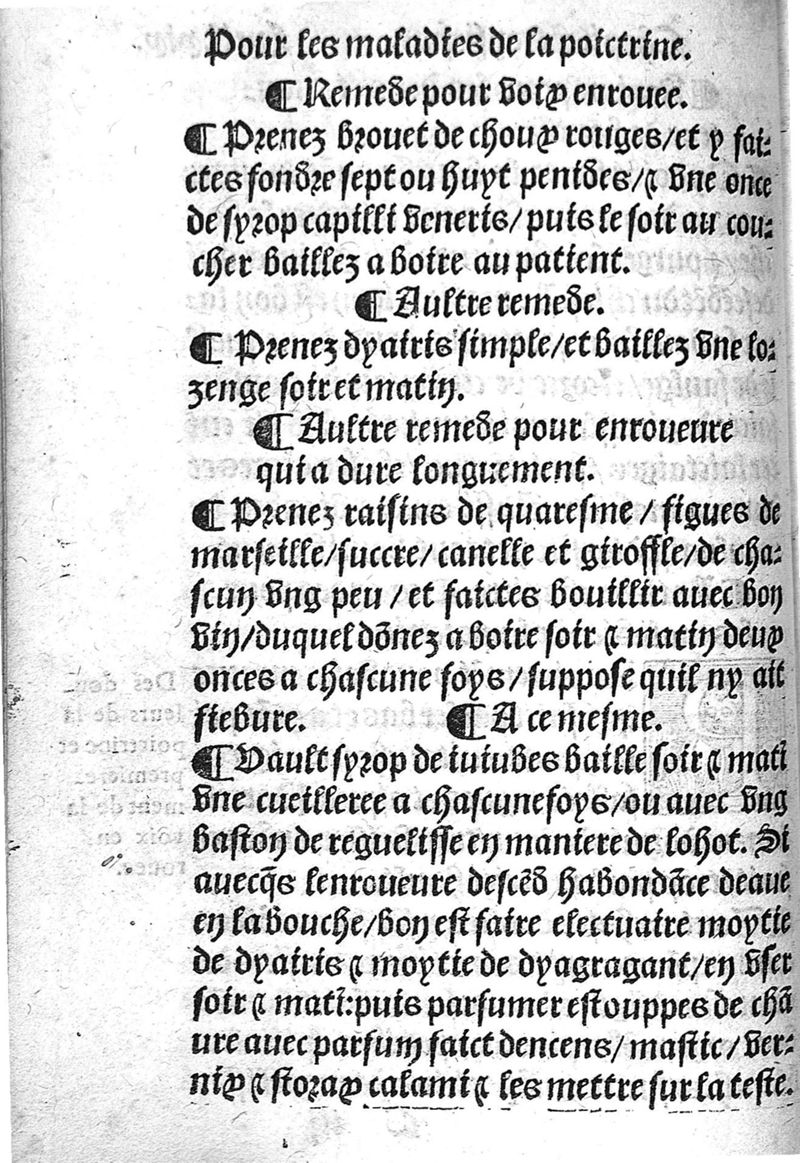 Pour les maladies de la poictrine.
¶ Remede pour voix enrouee.
¶ Prenez brouet de choux rouges/et y fai-
ctes fondre sept ou huyt penides/⁊ vne once
de syrop capilli veneris/puis le soir au cou-
cher baillez a boire au patient.
¶ Aultre remede.
¶ Prenez dyairis simple/et baillez vne lo-
zenge soir et matin.
¶ Aultre remede pour enroueure
qui a dure longuement.
¶ Prenez raisins de quaresme / figues de
marseille/succre/canelle et giroffle/de cha-
scun vng peu / et faictes bouillir auec bon
vin/duquel dõnez a boire soir ⁊ matin deux
onces a chascune foys/suppose quil ny ait
fiebure. ¶ A ce mesme.
¶ Vault syrop de iuiubes baille soir ⁊ matĩ
vne cueilleree a chascune foys/ou auec vng
baston de reguelisse en maniere de lohot. Si
auecq̃s lenroueure descẽd habondãce deaue
en la bouche/bon est faire electuaire moytie
de dyairis ⁊ moytie de dyagragant/en vser
soir ⁊ matĩ:puis parfumer estouppes de chã
ure auec parfum faict dencens/mastic/ver-
nix ⁊ storax calami ⁊ les mettre sur la teste.